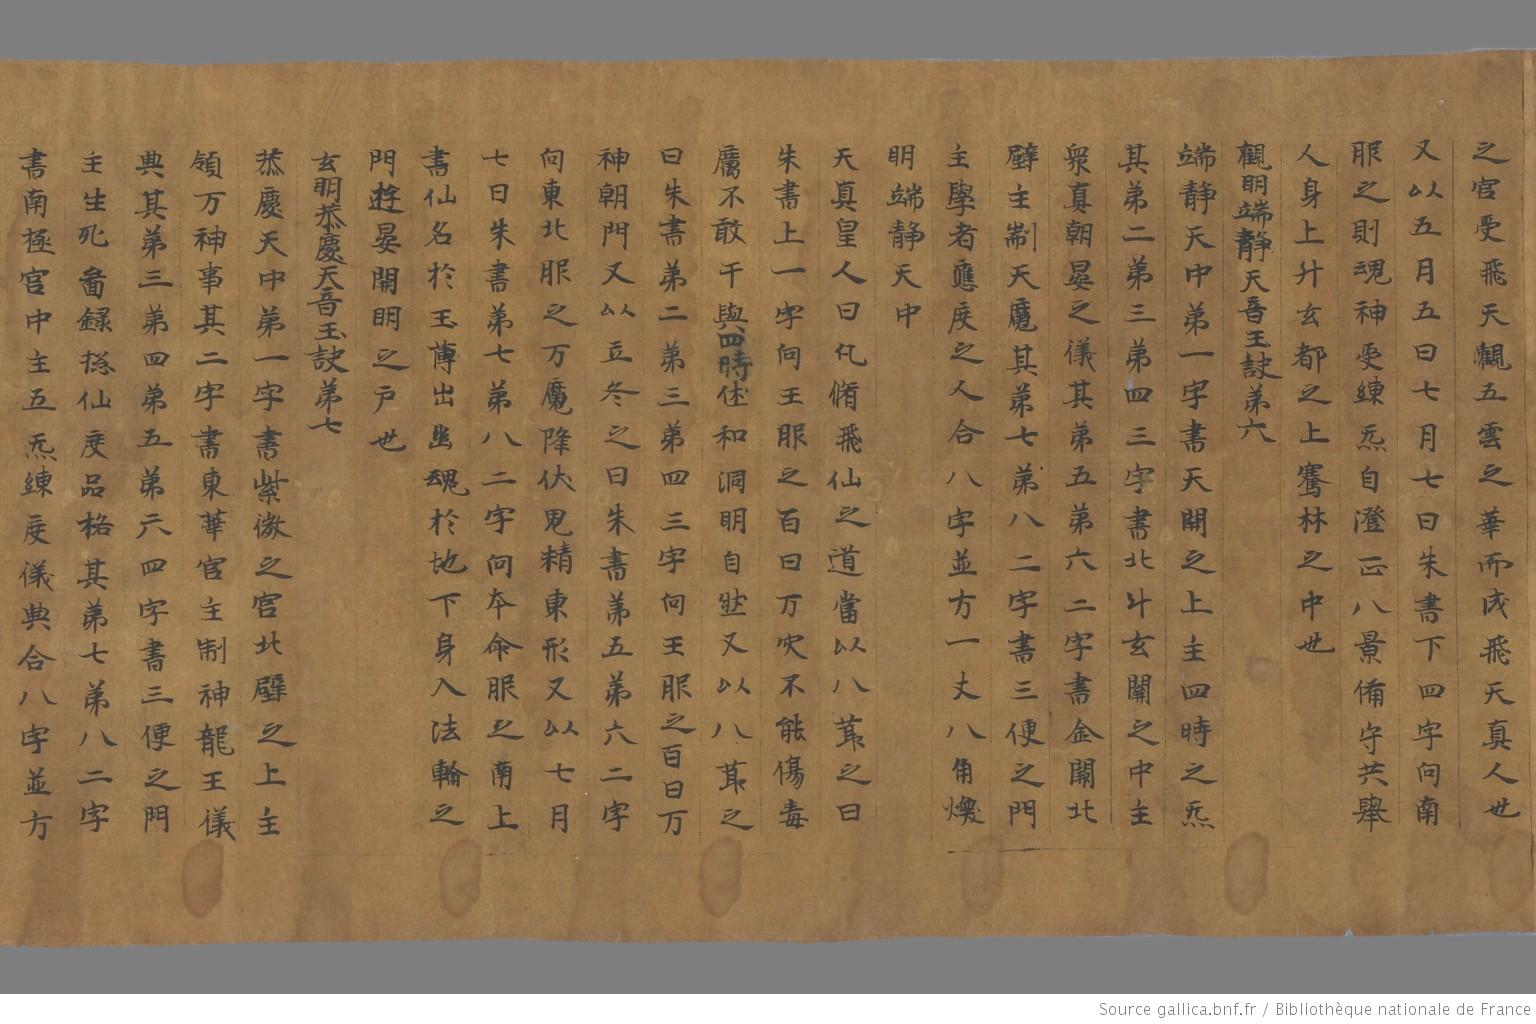 之官受飛天觀五雲之華而成飛天真人也
又以五月五日七月七日朱書下四字向南
服之則魂神受練炁自澄正八景俻守共舉
人身上升玄都之上騫林之中也
觀明端靜天音玉訣第六
端靜天中第一字書天關之上主四時之炁
其第二第三第四三字書北斗玄闕之中主
衆真朝晏之儀其第五第六二字書金闕北
壁主制天魔其第七第八二字書三便之門
主學者應度之人合八字並方一丈八角煥
明端靜天中
天真皇人曰凡脩飛仙之道當以八莭之日
朱書上一字向王服之百日万灾不能傷毒
厲不敢干與四時俱和洞明自然又以八莭之
日朱書第二第三第四三字向王服之百日万
神朝門又以立冬之日朱書第五第六二字
向東北服之万魔降伏鬼精束形又以七月
七日朱書第七第八二字向本命服之南上
書仙名於玉薄出幽魂於地下身入法輪之
門遊晏開明之户也
玄明恭慶天音玉訣第七
恭慶天中第一字書紫微之宫北壁之上主
領万神事其二字書東華宫主制神龍王儀
典其第三第四第五第六四字書三便之門
主生死啚録揔仙度品格其第七第八二字
書南極宫中主五炁練度儀典合八字並方
Source gallica.bnf.fr / Bibliothèque nationale de France